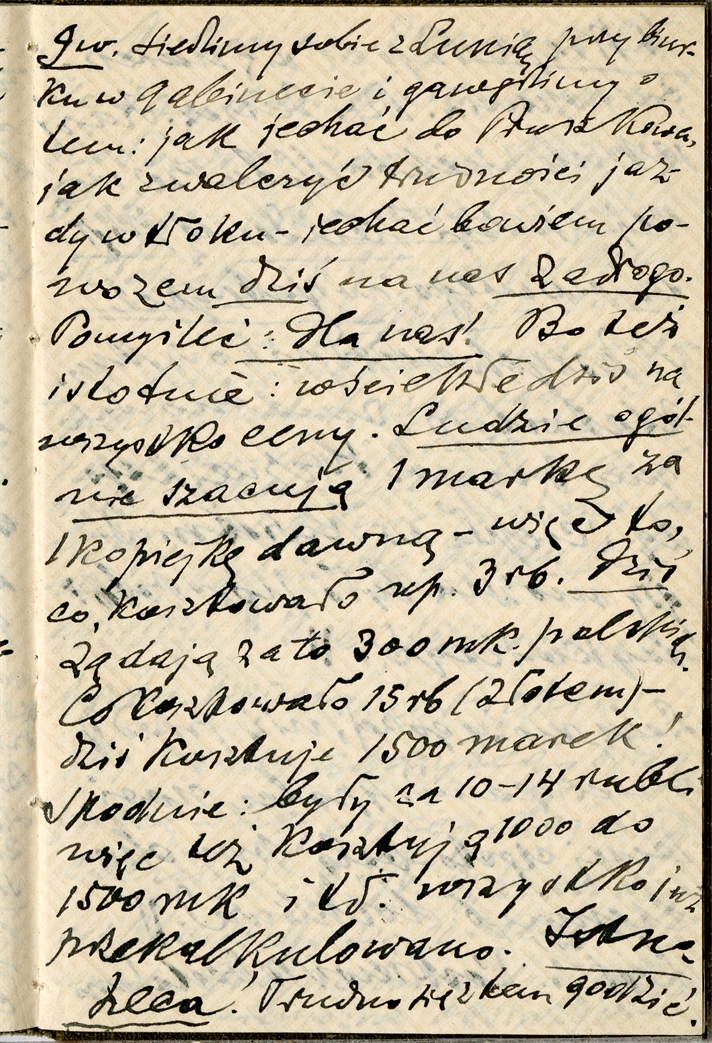 9 w. Siedzimy sobie z Lunią przy biur-
ku w gabinecie i gawędzimy o
tem: jak jechać do Pruszkowa,
jak zwalczyć trudności jaz-
dy w tłoku – jechać bowiem po-
wozem dziś na nas za drogo.
Pomyłki: Dla nas! Bo też
istotnie: wściekłe dziś na
wszystko ceny. Ludzie ogól-
nie szacują 1 markę za
1 kopiejkę dawną – więc to,
co kosztowało np. 3 rb. dziś
żądają za to 300 mk. polskich.
Co kosztowało 15 rb (złotem) –
dziś kosztuje 1500 marek!
Spodnie: były za 10–14 rubli
więc też kosztują 1000 do
1500 mk i td. wszystko już
przekalkulowano. Istna
heca! Trudno się z tem godzić.